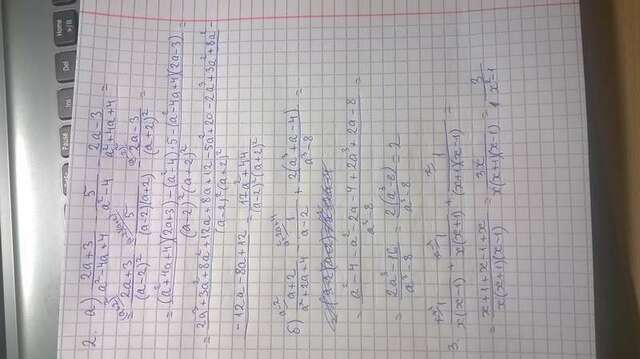 Pause
Ins
Del
Home
2. а) (2a+3)/(a²-4a+4) - 5/(a²-4) - (2a-3)/(a²+4a+4) =
= (2a+3)/(a-2)² - 5/((a-2)(a+2)) - (2a-3)/(a+2)² =
= ((a²+4a+4)(2a+3) - (a²-4)·5 - (a²-4a+4)(2a-3))/((a-2)²(a+2)²) =
= (2a³+3a²+8a²+12a+8a+12-5a²+20-2a³+3a²+8a²-
-12a-8a+12)/((a-2)²(a+2)²) = (17a²+44)/((a-2)²(a+2)²)
б) (a+2)/(a²+2a+4) - 1/(a-2) + 2(a³+a-4)/(a³-8) =
= (a²-4-a²-2a-4+2a³+2a-8)/(a³-8) =
= (2a³-16)/(a³-8) = 2(a³-8)/(a³-8) = 2
3. 1/(x(x-1)) + 1/(x(x+1)) + 1/((x+1)(x-1)) =
= (x+1+x-1+x)/(x(x+1)(x-1)) = 3x/(x(x+1)(x-1)) = 3/(x²-1)